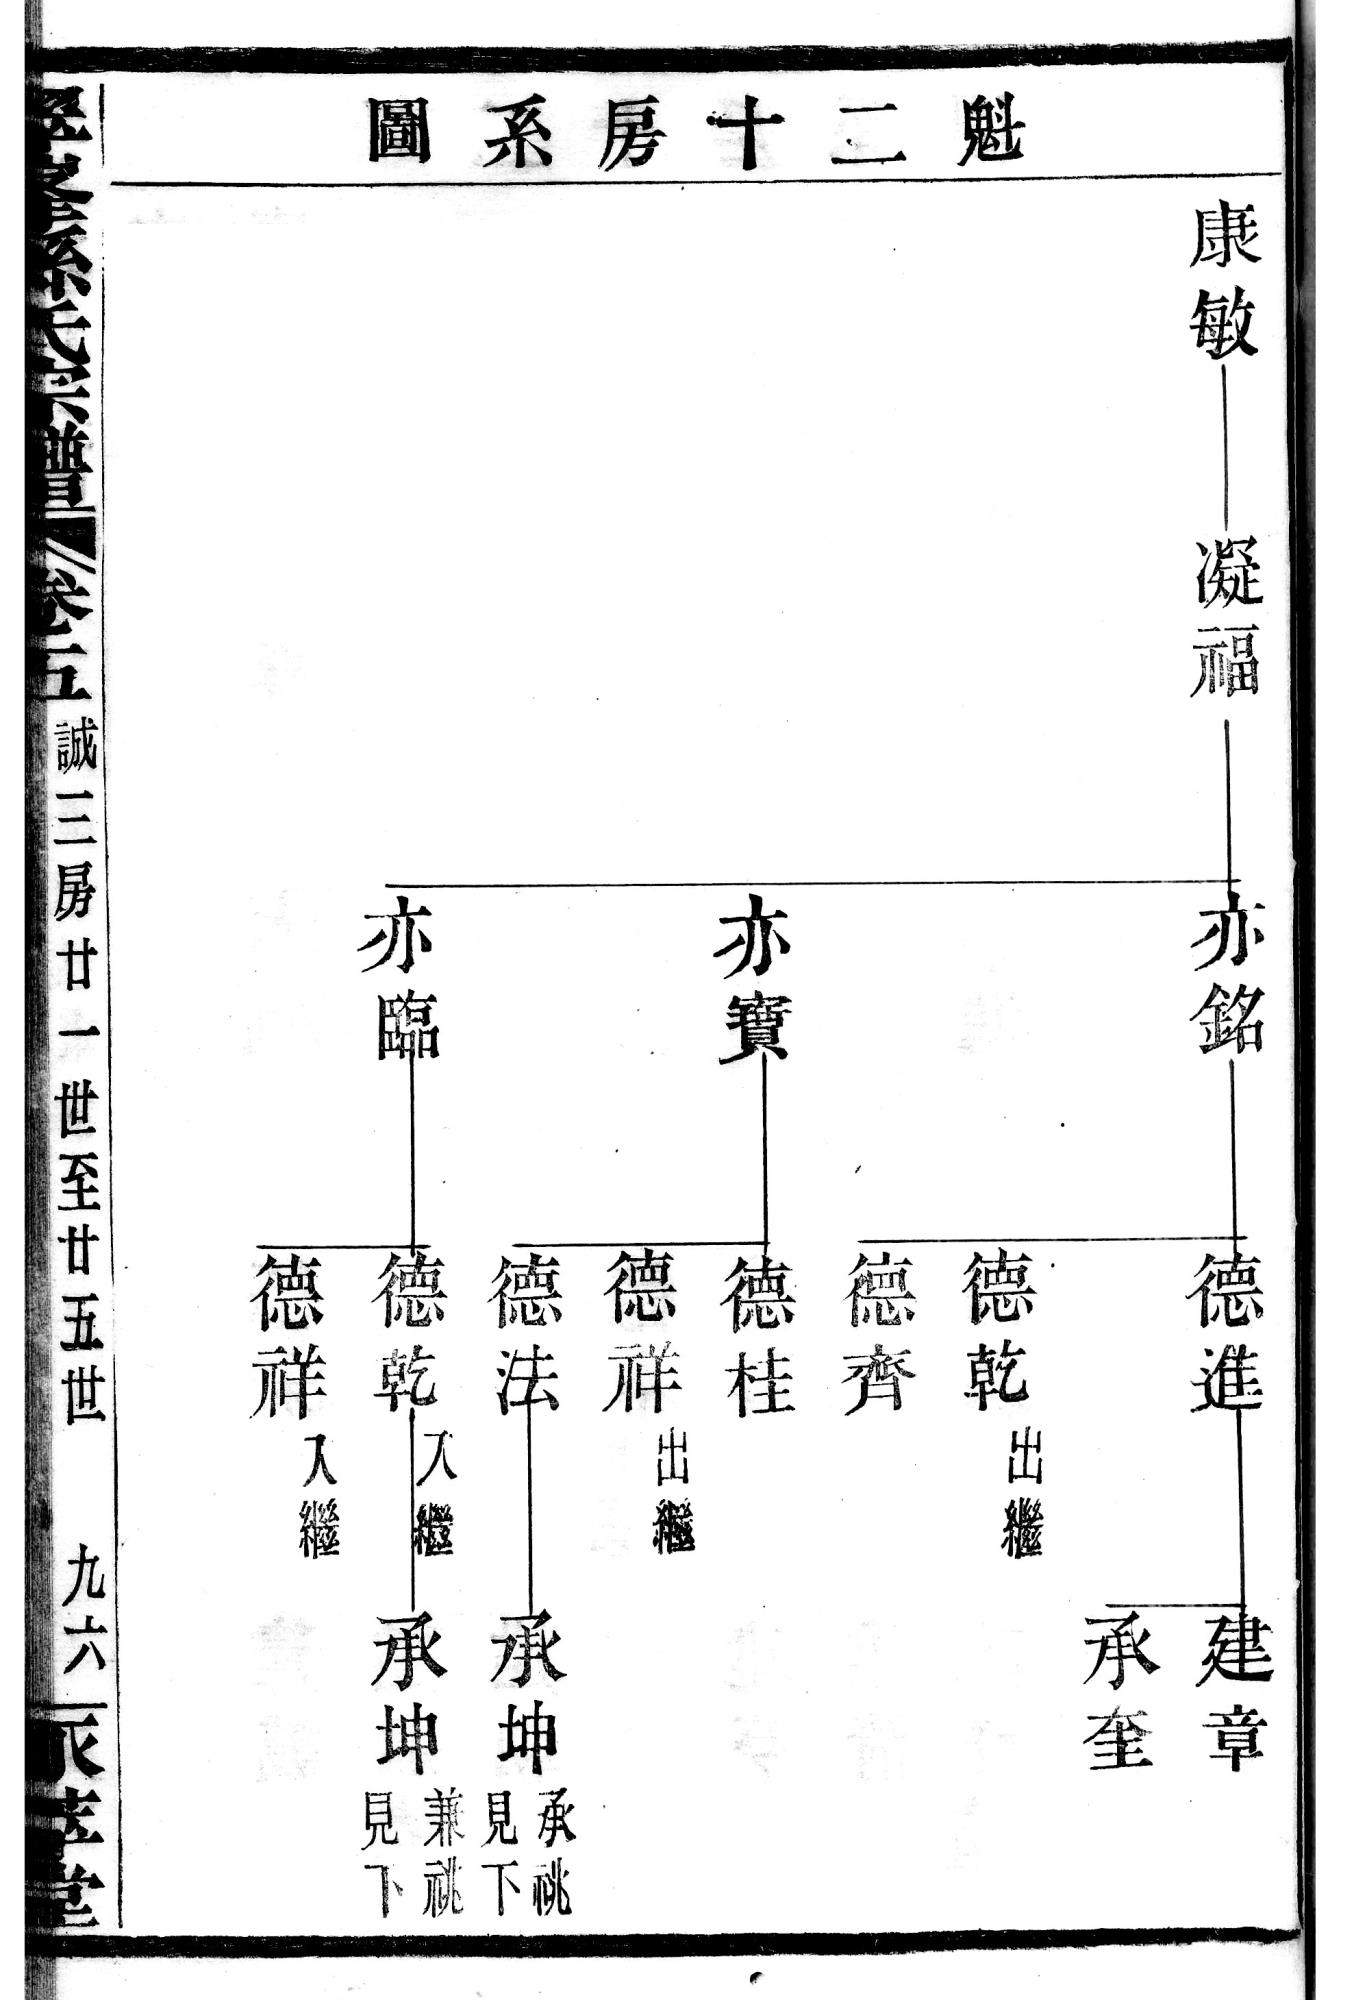 魁二十房系圖
康敏
凝福
亦銘
亦寶
亦臨
德進
德乾
出繼
德齊
德桂
德祥
出繼
德法
德乾
入繼
德祥
入繼
建章
承奎
承坤
承祧
見下
承坤
兼祧
見下
孫氏宗譜
卷五
誠三房廿一世至廿五世
九六
堂